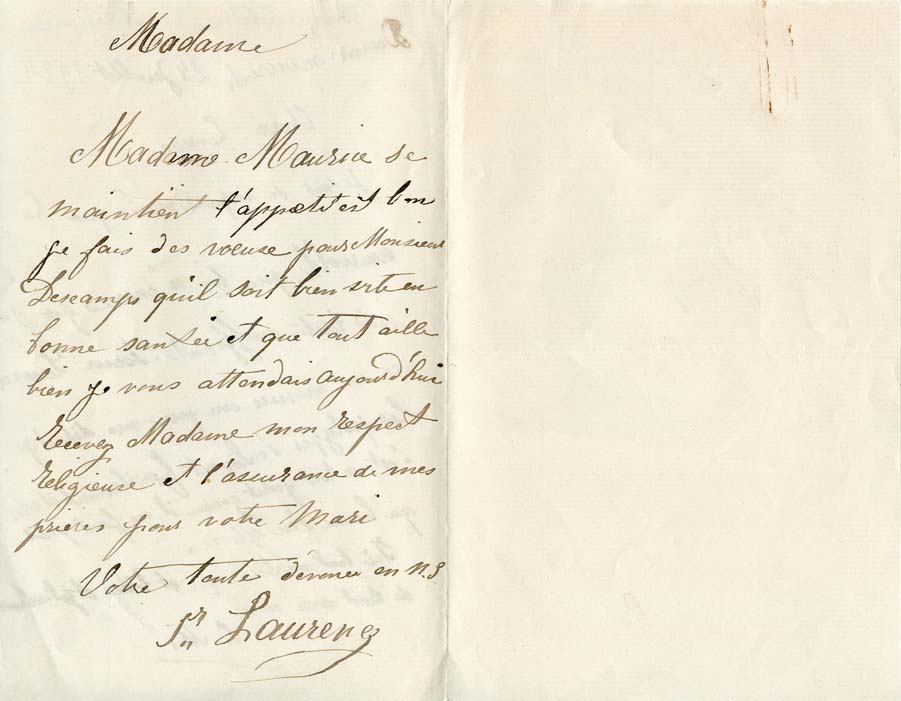 Madame
Madame Maurice se
maintient l'appetit est bon
je fais des voeuse pour Monsieur
Descamps qu'il soit bien vite en
bonne santée et que tout aille
bien je vous attendais aujourd'hui
Recevez Madame mon respect
religieuse et l'assurance de mes
prieres pour votre Mari
Votre toute dévouée en N.S
Sr Laurence